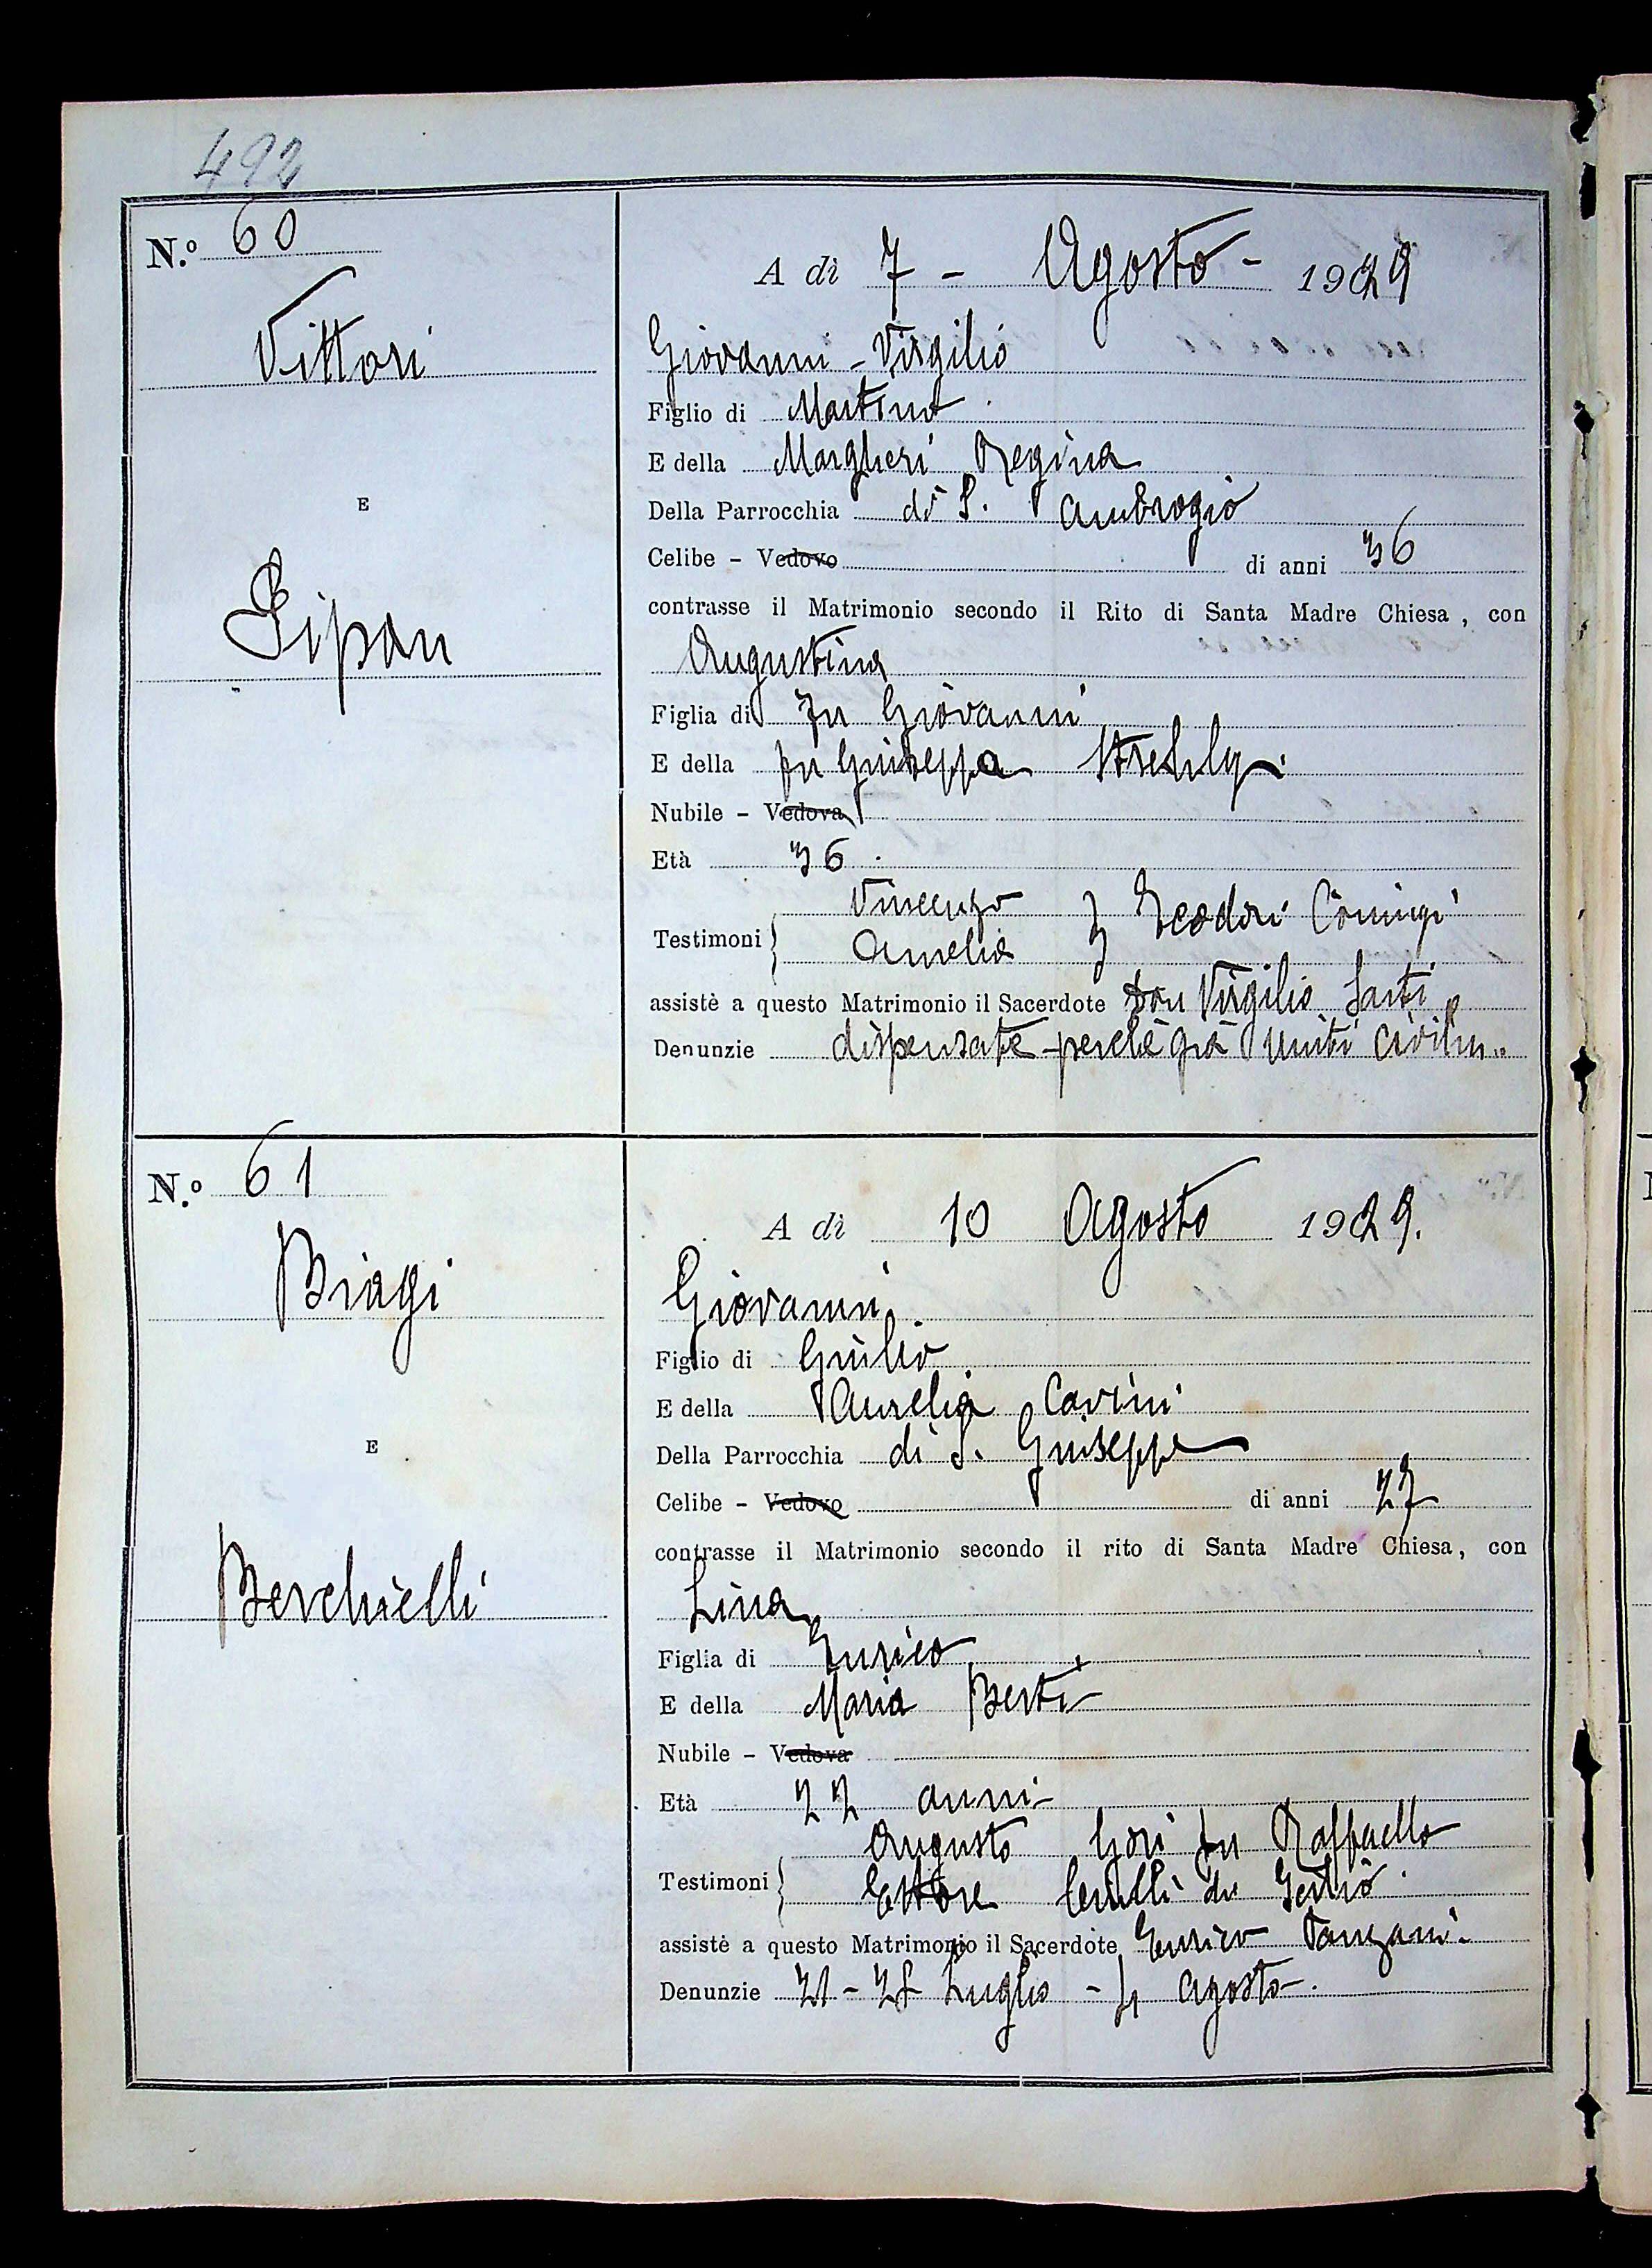 492
N.º 60
A dì 7 - Agosto - 1929
Vittori
Giovanni - Virgilio
Figlio di Martino
E della Margheri Regina
E
Della Parrocchia di S. Ambrogio
Celibe - Vedovo di anni 36
contrasse il Matrimonio secondo il Rito di Santa Madre Chiesa, con
Augustina
Figlia di fu Giovanni
E della fu Giuseppa
Nubile - Vedova
Età 36.
Vincenzo
Testimoni
Amelia
assistè a questo Matrimonio il Sacerdote Don Virgilio Sarti
Denunzie dispensate perchè già uniti civilm.
N.º 61
A dì 10 Agosto 1929.
Biagi
Giovanni
Figlio di Giulio
E della Aurelia Carini
E
Della Parrocchia di S. Giuseppe
Celibe - Vedovo di anni 27
contrasse il Matrimonio secondo il rito di Santa Madre Chiesa, con
Berchielli
Lina
Figlia di Enrico
E della Maria Berti
Nubile - Vedova
Età 22 anni
Augusto Gori fu Raffaello
Testimoni
Ettore
assistè a questo Matrimonio il Sacerdote Enrico
Denunzie 21 - 28 Luglio - 4 Agosto.